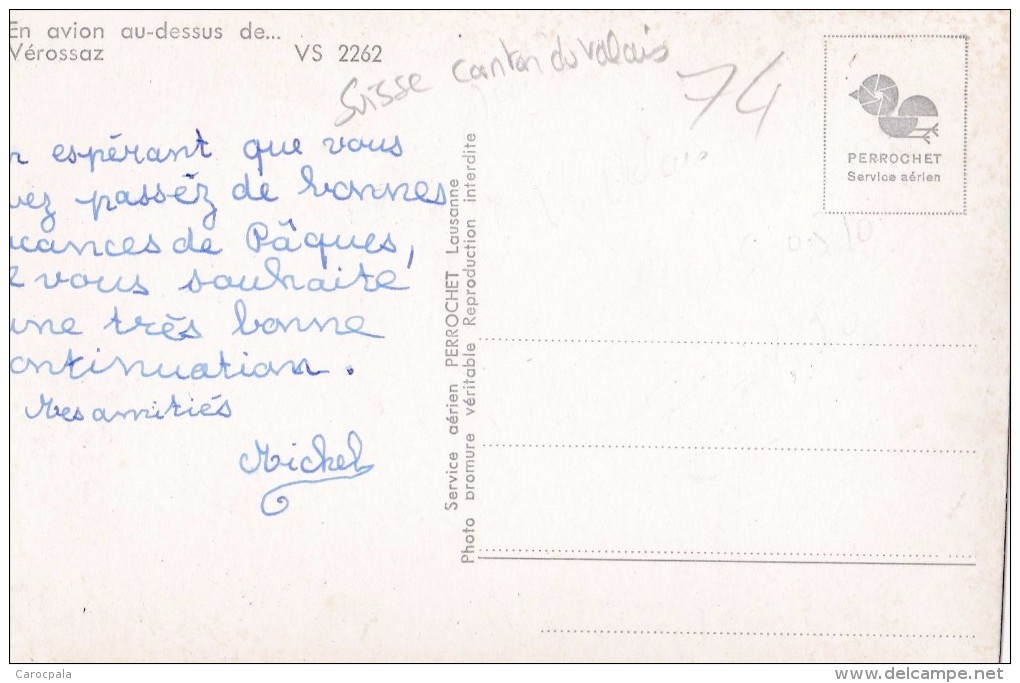 En avion au-dessus de...
Vérossaz VS 2262
Suisse canton du Valais
74
n espérant que vous
vez passéz de bonnes
acances de Pâques,
z vous souhaite
une très bonne
ontinuation.
Mes amitiés
Michel
Service aérien PERROCHET Lausanne
Photo bromure véritable Reproduction interdite
PERROCHET
Service aérien
Carocpala
www.delcampe.net